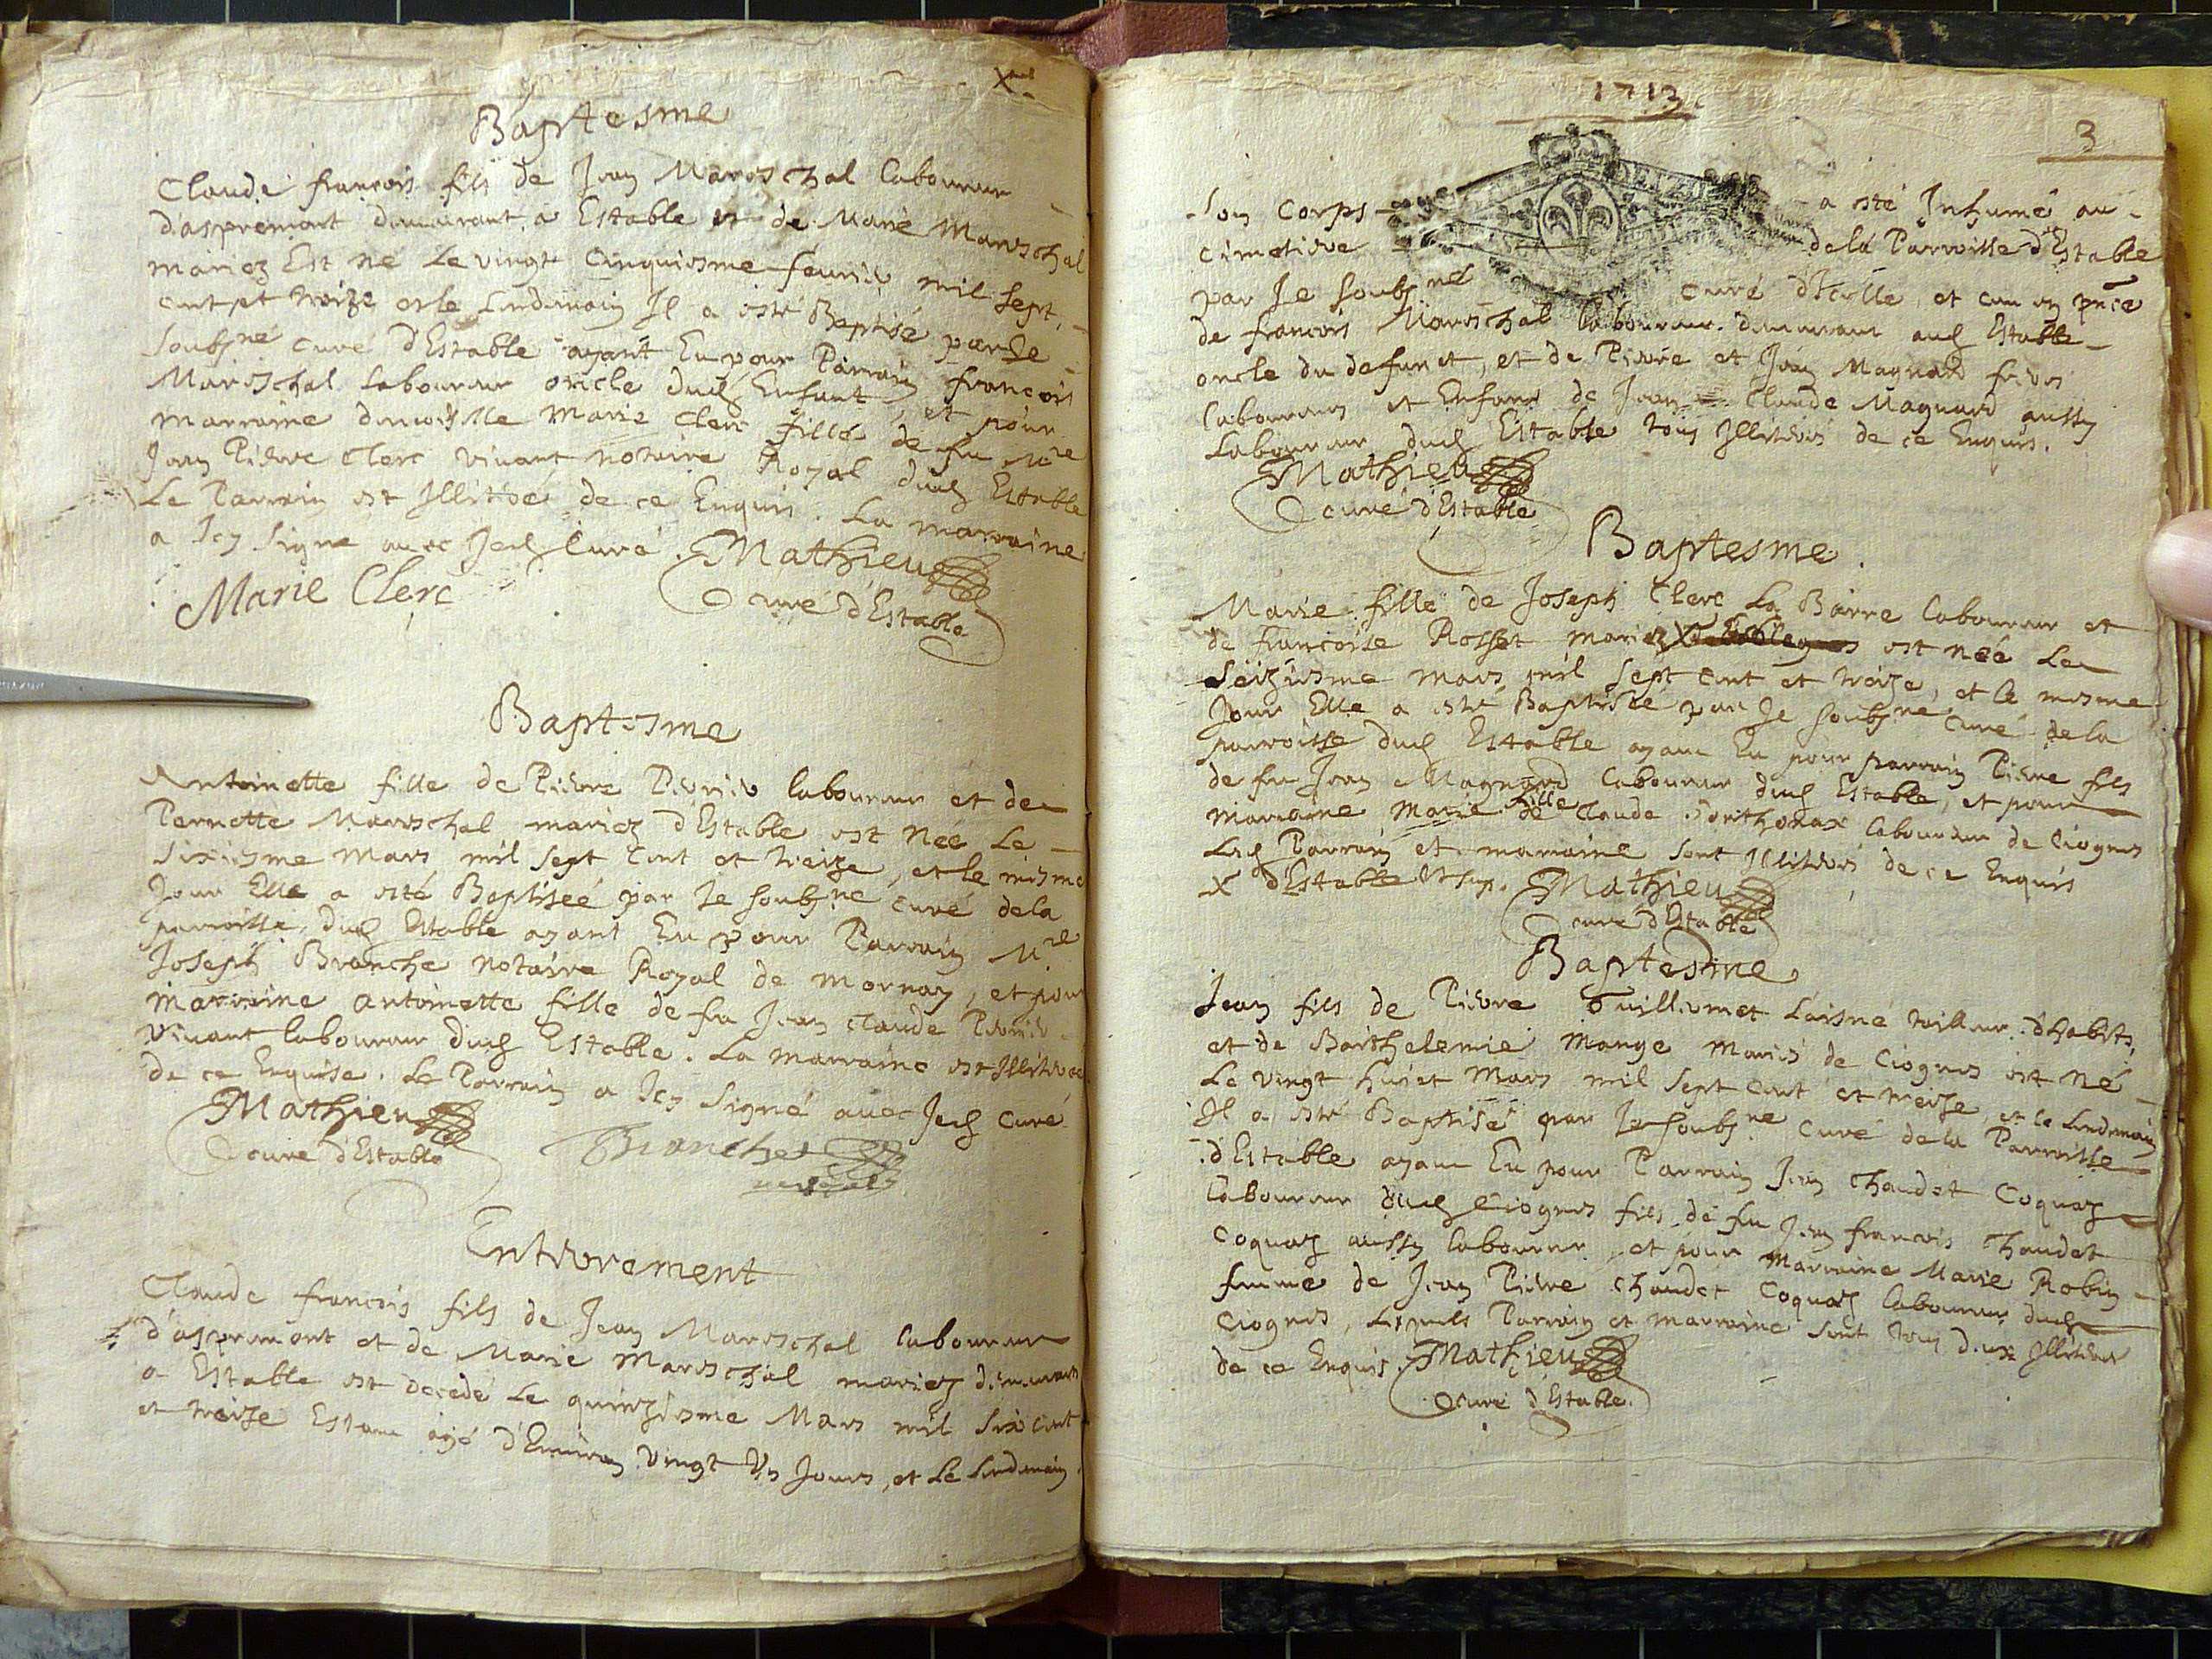 Baptesme
Claude françois fils de Jean Mareschal laboureur
d'aspremont demeurant a Estable et de Marie Mareschal
mariez Est né Le vingt Cinquiesme feurier mil sept
cent et treize et le Lendemain Il a esté Baptisé par Je
Soubs.né curé d'Estable ayant Eu pour Parrain françois
Mareschal Laboureur oncle dud Enfant, et pour
marraine damoislle Marie Clerc fille de fu M.re
Jean Pierre Clerc vivant notaire Royal dud Estable
Le Parrain est Illiteré de ce Enquis. La marraine
a Icy Signe avec Jed Curé. Mathieu
Marie Clerc
curé d'Estable
Baptesme
Antoinette fille de Pierre Perrier laboureur et de
Pernette Mareschal mariez d'Estable est Née Le
Sixiesme Mars mil sept Cent et treize, et le mesme
Jour Elle a esté Baptiseé par Je soubs.ne curé dela
parroisse dud Estable ayant Eu pour Parrain M.re
Joseph Branche notaire Royal de Mornay, et pour
marraine antoinette fille de fu Jean Claude Perrier
vivant laboureur dud Estable. La marraine est Illiteree
de ce Enquise. Le Parrain a Icy Signé avec Jed Curé
Mathieu
curé d'Estable
Branche
Enterrement
Claude francois fils de Jean Mareschal laboureur
d'aspremont et de Marie Mareschal mariez demeurans
a Estable est decedé Le quinziesme Mars mil six cent
et treize Estant agé d'Environ vingt Un Jours, et Le Lendemain
1713
3
Son Corps a esté Inhumé au
cimetiere dela Parroisse d'Estable
par Je Soubs.né curé et en p.nce
de francois Mareschal laboureur demeurant aud Estable
oncle du defunct, et de Pierre et Jean Magnard freres
laboureurs et Enfans de Jean Claude Magnard aussy
Laboureur dud Estable tous Illiterés de ce Enquis.
Mathieu
curé d'Estable
Baptesme.
Marie fille de Joseph Clerc La Barre laboureur et
de francoise Rosset mariez X est née Le
Seiziesme mars mil sept cent et treize, et le mesme
Jour Elle a esté Baptiseé par Je soubs.né Curé dela
parroisse dud Estable ayant Eu pour parrain Pierre fils
de fu Jean Magnard laboureur dud Estable, et pour
marraine Marie fille de Claude laboureur de Ciognes
Lesd Parrain et marraine sont Illiterés de ce Enquis
X d'Estable Mathieu
curé d'Estable
Baptesme
Jean fils de Pierre Guillermet Laisné tailleur d'habits,
et de Barthelemie Mange mariés de Ciognes est né
Le vingt huict Mars mil sept cent et treize, et le Lendemain
Il a esté Baptisé par Je soubs.ne curé dela Parroisse
d'Estable ayant Eu pour Parrain Jean Chaudet Coquaz
laboureur dud Ciognes fils de fu Jean francois Chaudet
Coquaz aussy laboureur, et pour Marraine Marie Robin
femme de Jean Pierre Chaudet Coquaz laboureur dud
Ciognes, Lesquels Parrain et marraine sont tous deux Illiteres
de ce Enquis. Mathieu
curé d'Estable.